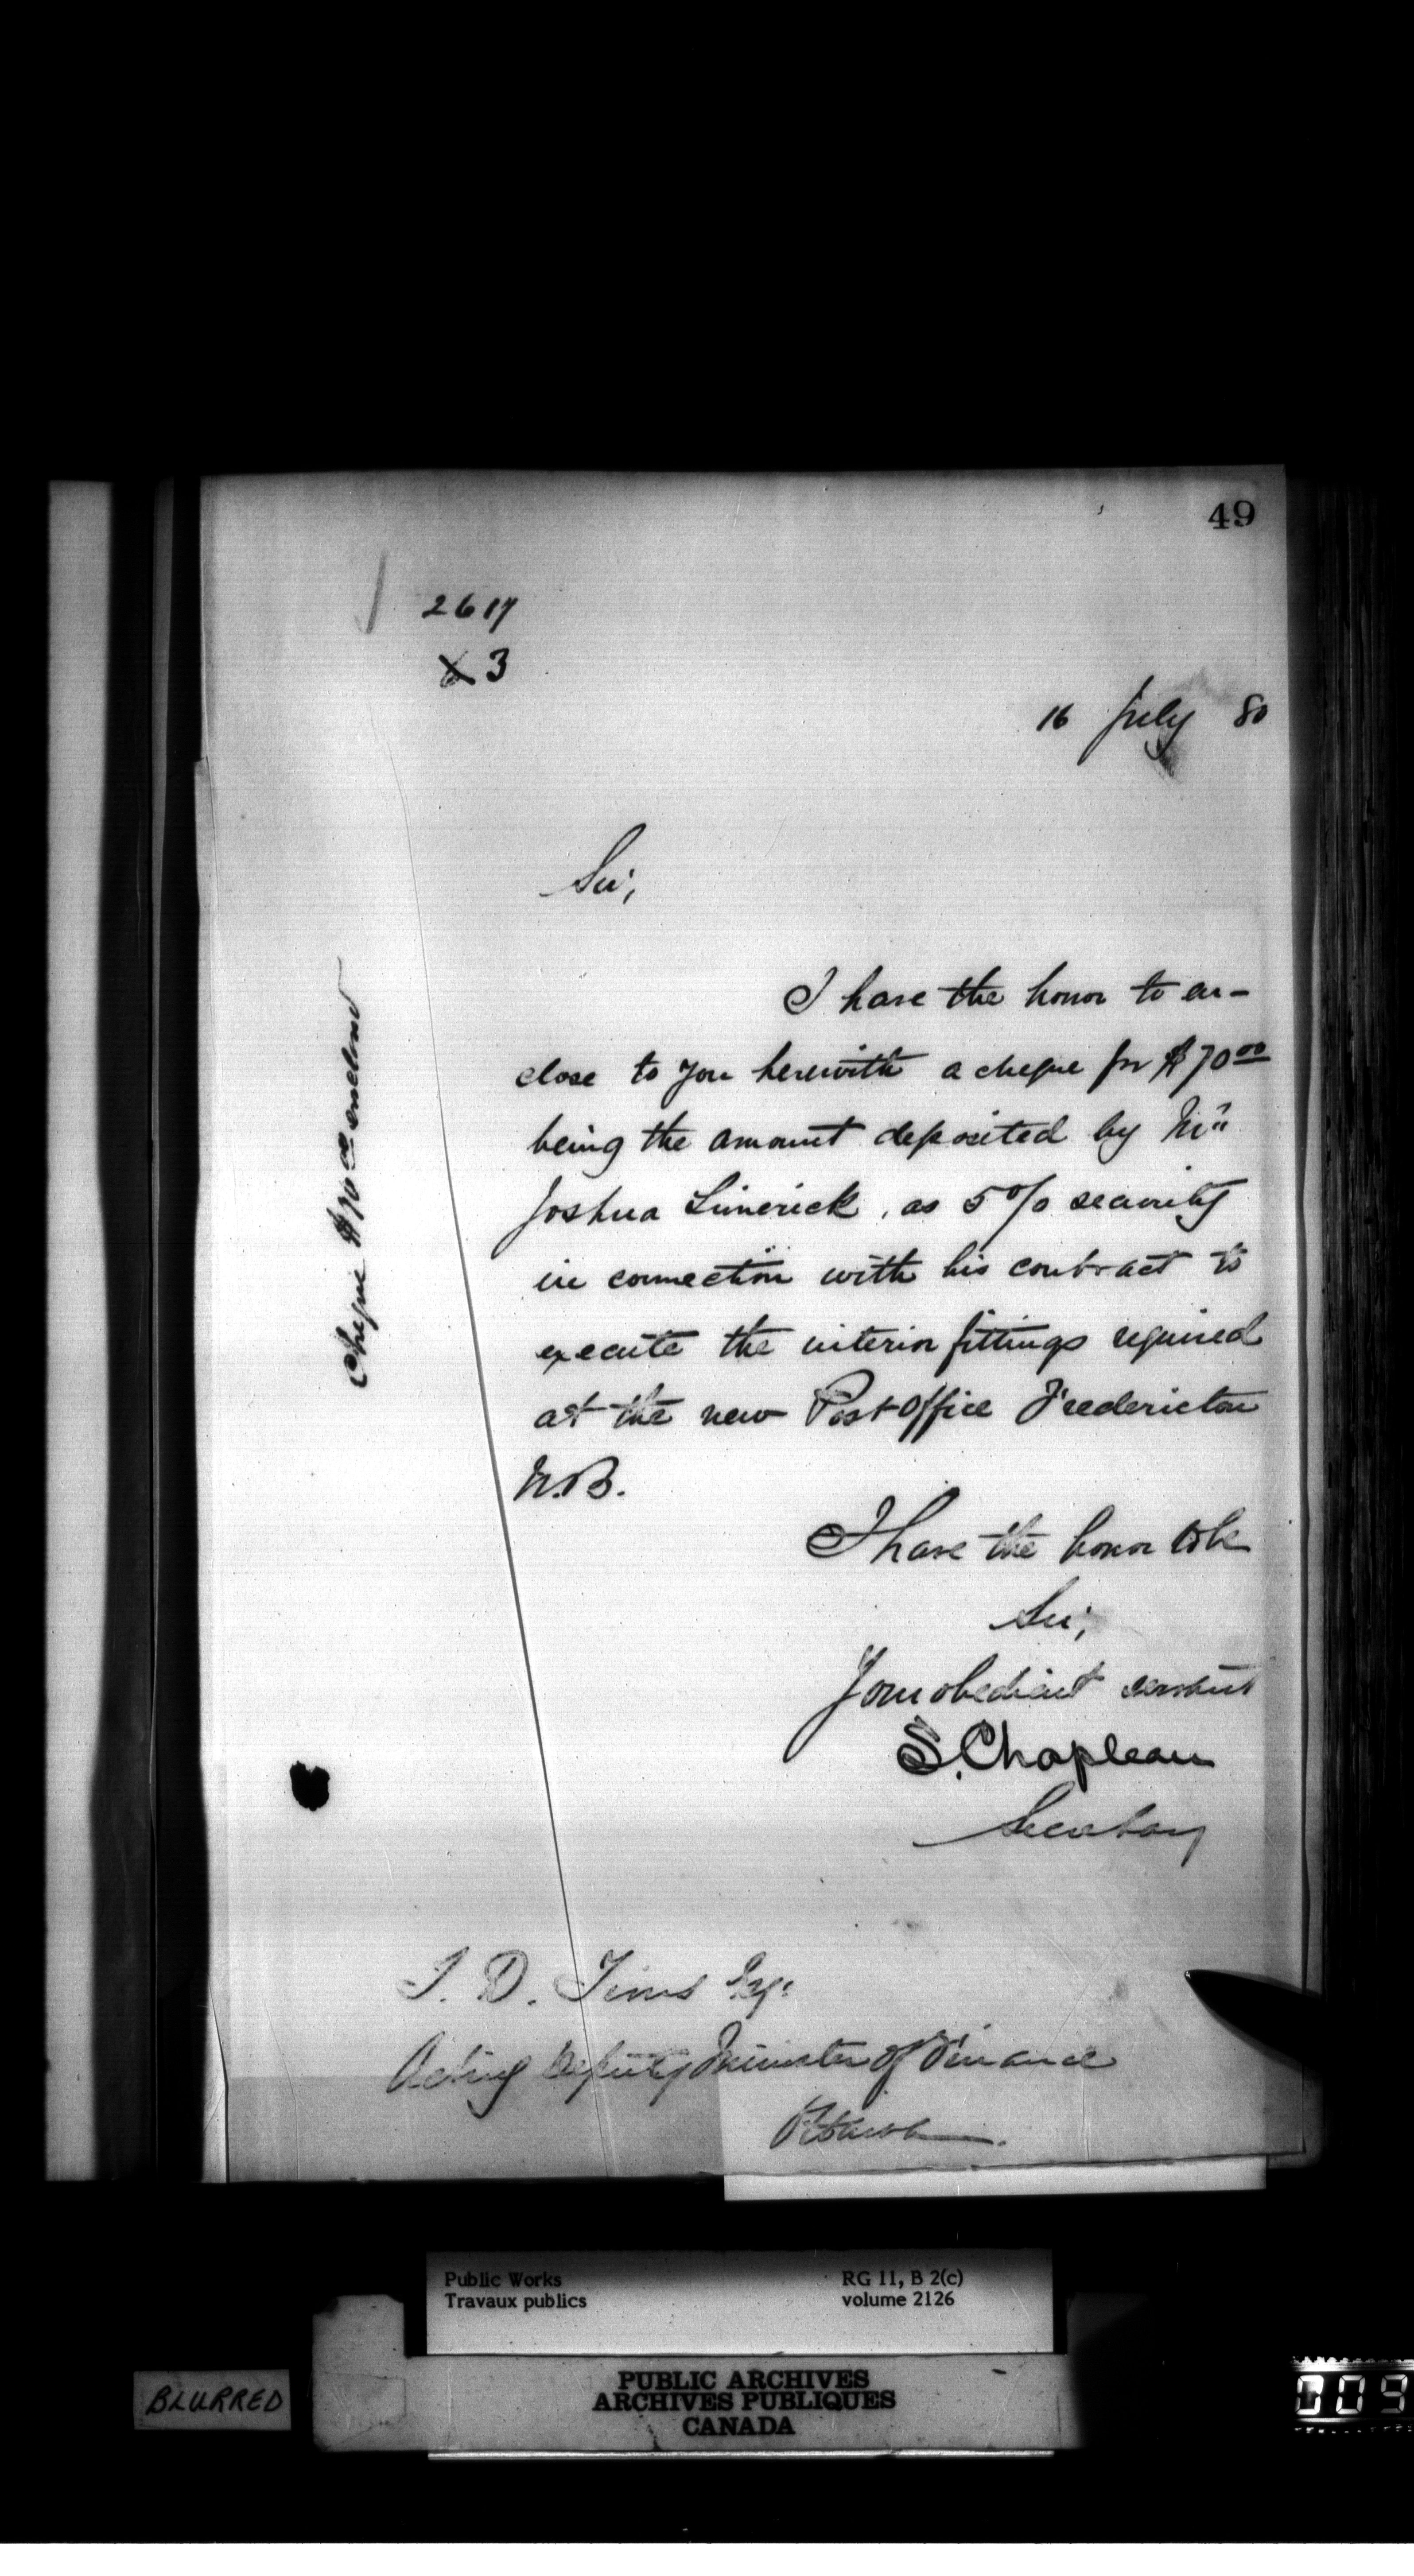 49
2617
3
16 July 80
Sir,
I have the honor to en-
close to you herewith a cheque for $70 00
being the amount deposited by Mr
Joshua Limerick, as 5% security
in connection with his contract to
execute the interior fittings required
at the new Post Office Fredericton
N.B.
I have the honor to be
Sir,
Your obedient servant
S. Chapleau
Secretary
Cheque $70 00 enclosed
J. D. Tims Esq.
Acting Deputy Minister of Finance
Ottawa
Public Works
Travaux publics
RG 11, B 2(c)
volume 2126
PUBLIC ARCHIVES
ARCHIVES PUBLIQUES
CANADA
BLURRED
009